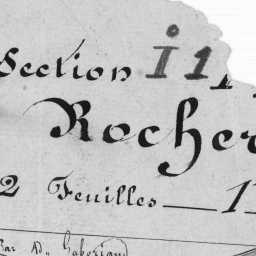 Section I 1
Rocher
2 Feuilles — 1
Par Ad. Gaboriaud